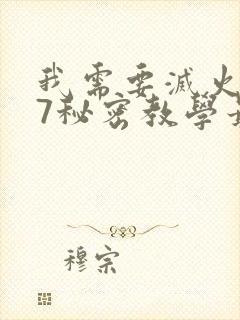 我需要滅火
7秘密教學
穆宗